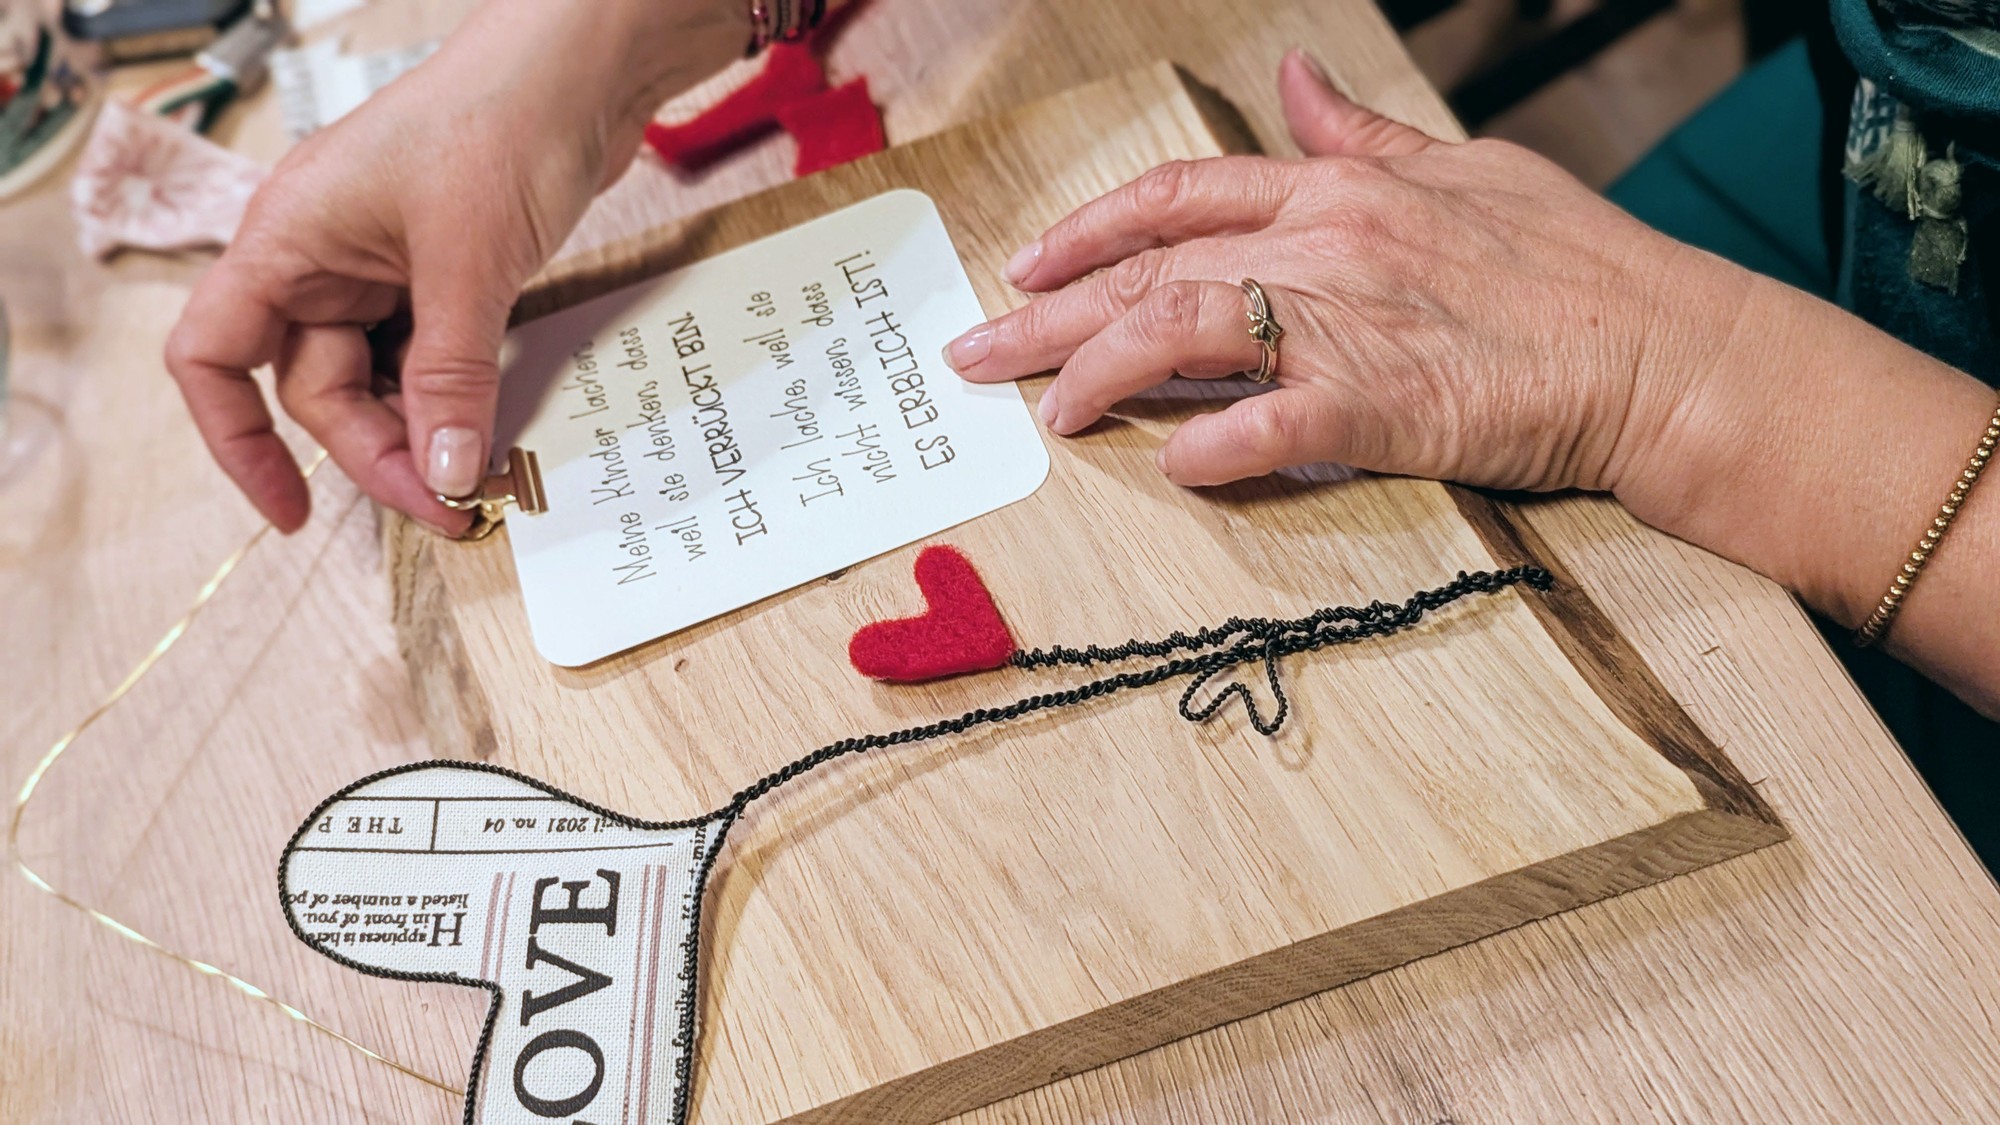 Meine Kinder lachen,
weil sie denken, dass
ICH VERRÜCKT BIN.
Ich lache, weil sie
nicht wissen, dass
ES ERBLICH IST!
THE P
April 2021 no. 04
Happiness is here
in front of you.
listed a number of
LOVE